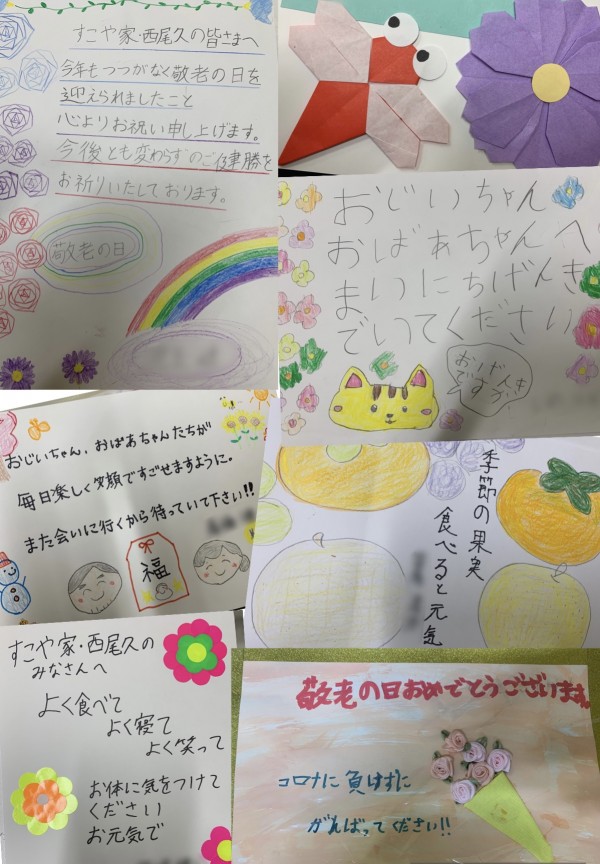 すこや家・西尾久の皆さまへ
今年もつつがなく敬老の日を
迎えられましたこと
心よりお祝い申し上げます。
今後とも変わらずのご健勝を
お祈りいたしております。
敬老の日
おじいちゃん
おばあちゃんへ
まいにちげんき
でいてください
おげんき
ですか。
おじいちゃん、おばあちゃんたちが
毎日楽しく笑顔ですごせますように。
また会いに行くから待っていて下さい!!
福
季節の果実
食べると元気
すこや家・西尾久の
みなさんへ
よく食べて
よく寝て
よく笑って
お体に気をつけて
ください
お元気で
敬老の日おめでとうございます
コロナに負けずに
がんばってください!!